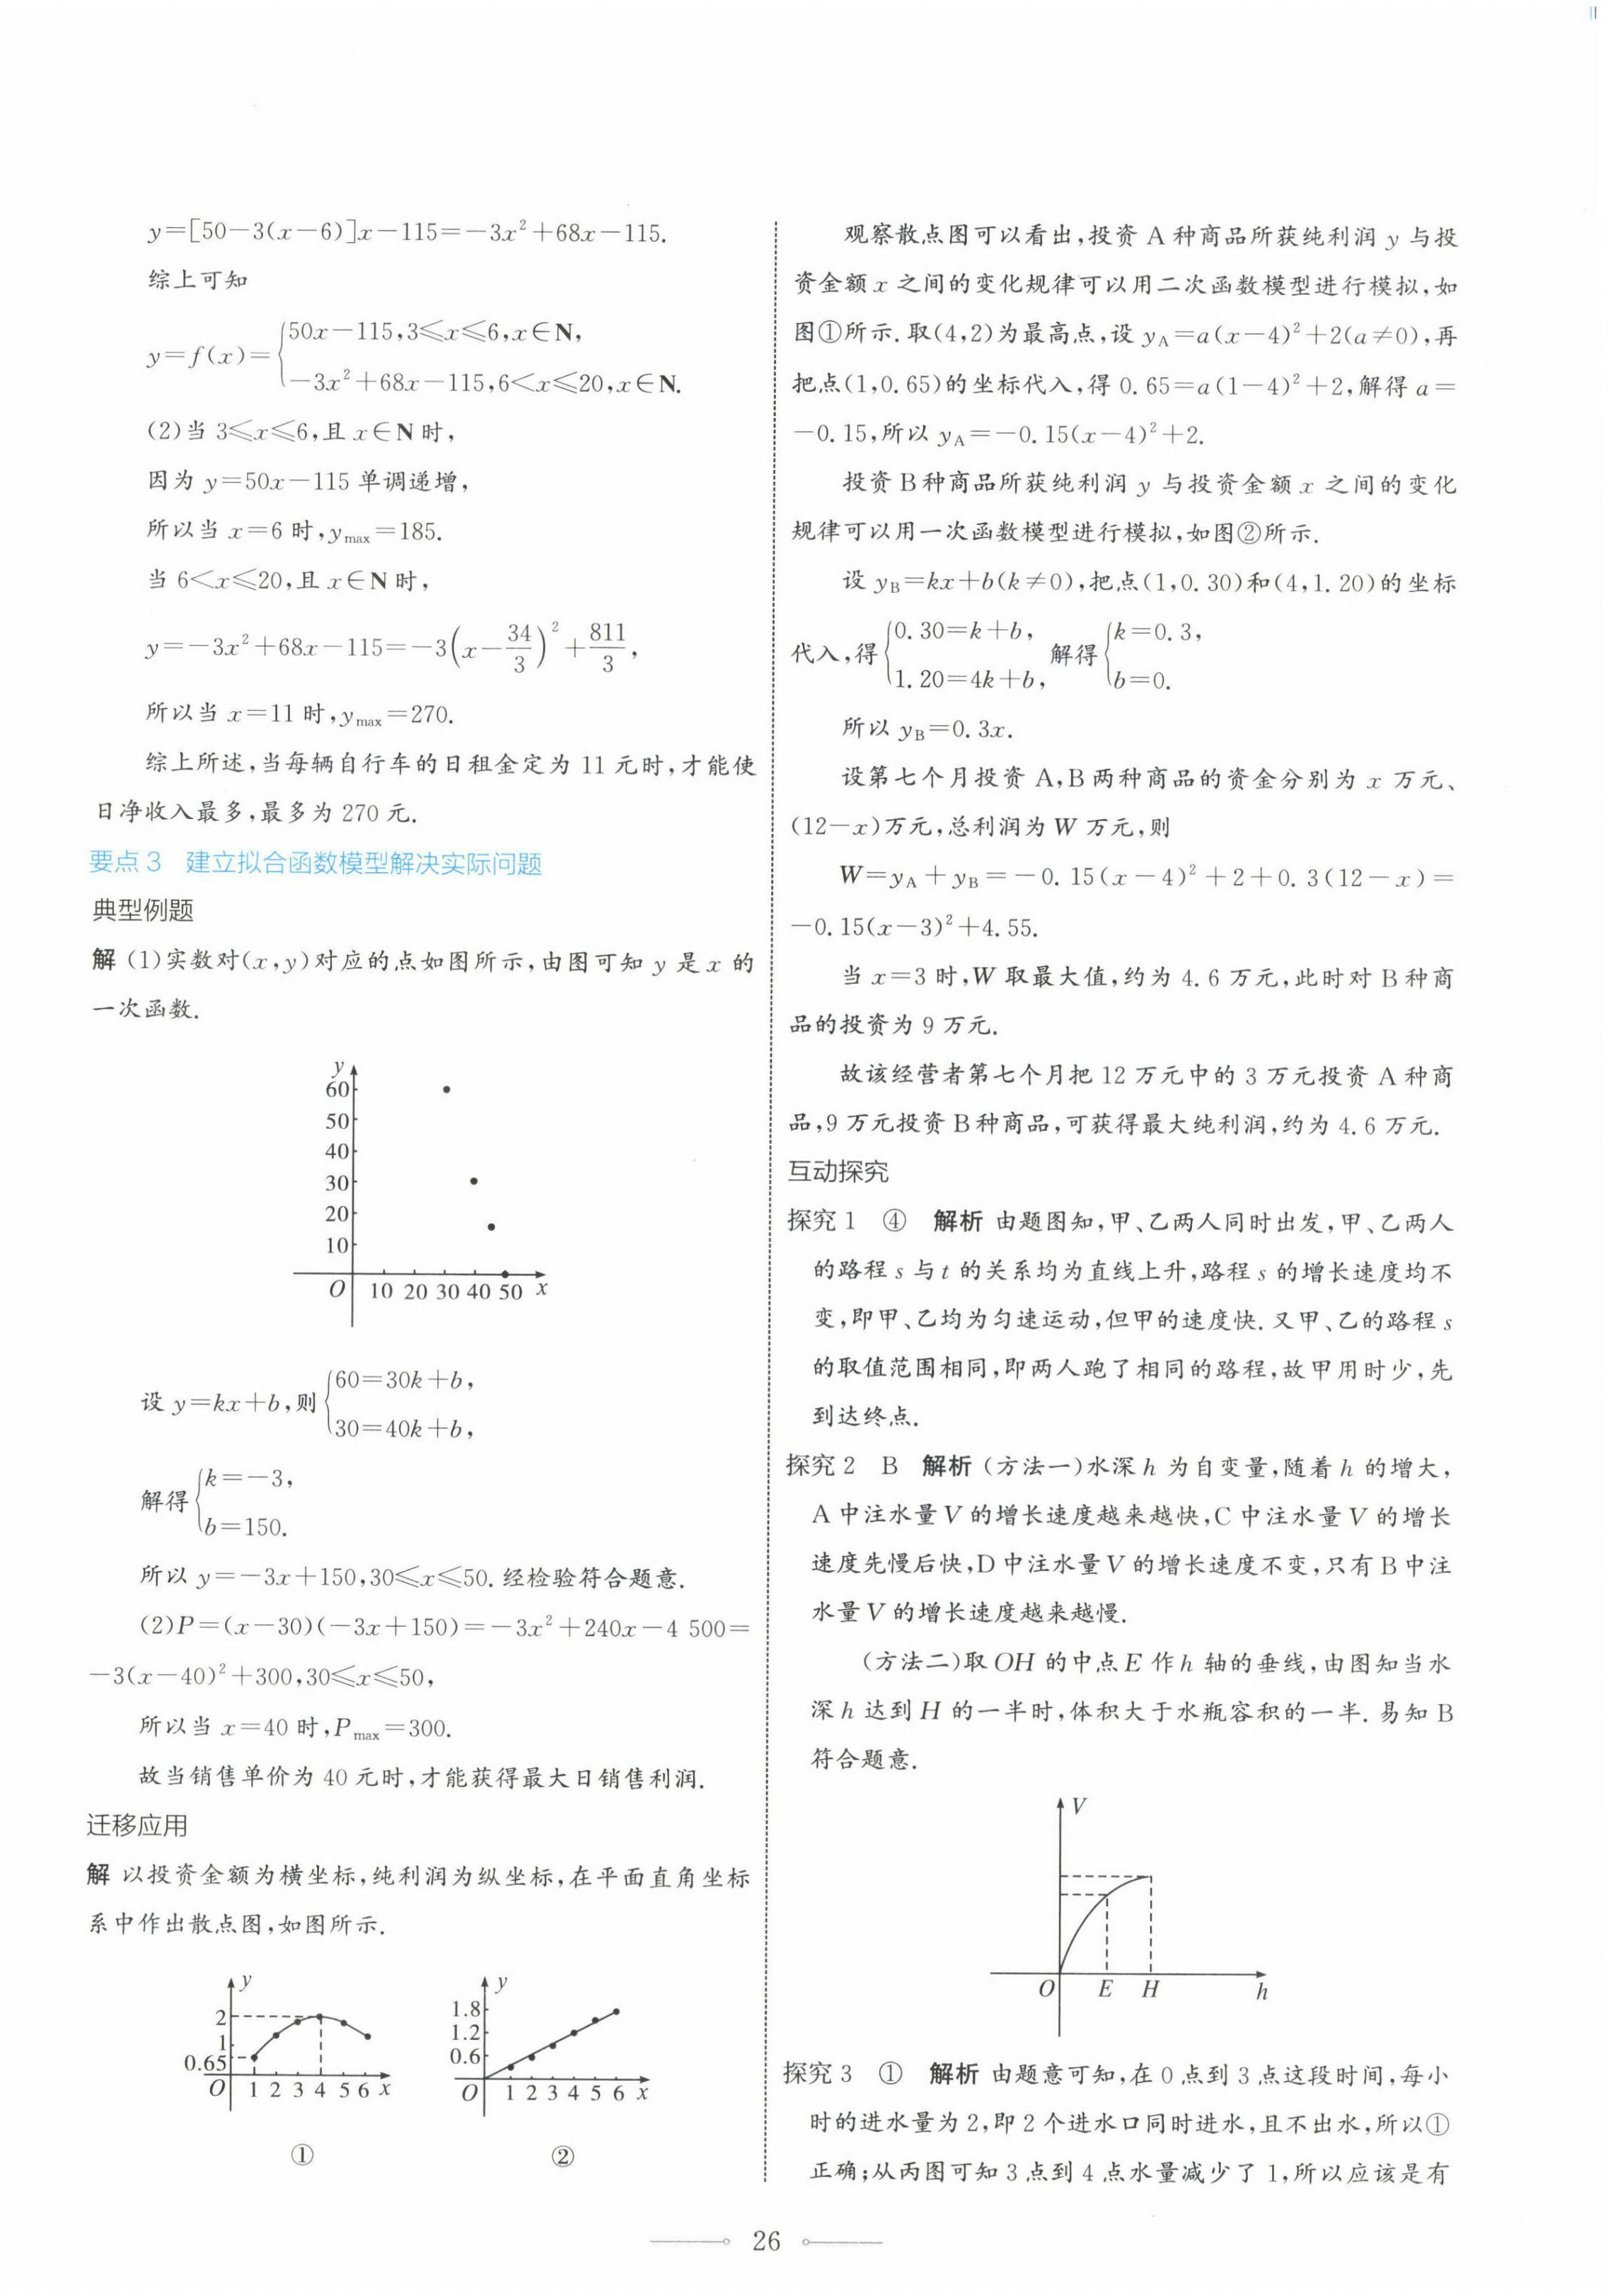 y=[50-3(x-6)]x-115=-3x²+68x-115.
综上可知
y=f(x)={50x-115,3≤x≤6,x∈N,
-3x²+68x-115,6<x≤20,x∈N.
(2)当 3≤x≤6,且 x∈N 时,
因为 y=50x-115 单调递增,
所以当 x=6 时,y_max=185.
当 6<x≤20,且 x∈N 时,
y=-3x²+68x-115=-3(x-34/3)²+811/3,
所以当 x=11 时,y_max=270.
综上所述,当每辆自行车的日租金定为 11 元时,才能使
日净收入最多,最多为 270 元.
要点 3 建立拟合函数模型解决实际问题
典型例题
解 (1)实数对(x,y)对应的点如图所示,由图可知 y 是 x 的
一次函数.
y
60
50
40
30
20
10
O 10 20 30 40 50 x
设 y=kx+b,则{60=30k+b,
30=40k+b,
解得{k=-3,
b=150.
所以 y=-3x+150,30≤x≤50. 经检验符合题意.
(2)P=(x-30)(-3x+150)=-3x²+240x-4 500=
-3(x-40)²+300,30≤x≤50,
所以当 x=40 时,P_max=300.
故当销售单价为 40 元时,才能获得最大日销售利润.
迁移应用
解 以投资金额为横坐标,纯利润为纵坐标,在平面直角坐标
系中作出散点图,如图所示.
y
2
1
0.65
O 1 2 3 4 5 6 x
①
y
1.8
1.2
0.6
O 1 2 3 4 5 6 x
②
观察散点图可以看出,投资 A 种商品所获纯利润 y 与投
资金额 x 之间的变化规律可以用二次函数模型进行模拟,如
图①所示. 取(4,2)为最高点,设 y_A=a(x-4)²+2(a≠0),再
把点(1,0.65)的坐标代入,得 0.65=a(1-4)²+2,解得 a=
-0.15,所以 y_A=-0.15(x-4)²+2.
投资 B 种商品所获纯利润 y 与投资金额 x 之间的变化
规律可以用一次函数模型进行模拟,如图②所示.
设 y_B=kx+b(k≠0),把点(1,0.30)和(4,1.20)的坐标
代入,得{0.30=k+b, 1.20=4k+b, 解得{k=0.3, b=0.
所以 y_B=0.3x.
设第七个月投资 A,B 两种商品的资金分别为 x 万元、
(12-x)万元,总利润为 W 万元,则
W=y_A+y_B=-0.15(x-4)²+2+0.3(12-x)=
-0.15(x-3)²+4.55.
当 x=3 时,W 取最大值,约为 4.6 万元,此时对 B 种商
品的投资为 9 万元.
故该经营者第七个月把 12 万元中的 3 万元投资 A 种商
品,9 万元投资 B 种商品,可获得最大纯利润,约为 4.6 万元.
互动探究
探究 1 ④ 解析 由题图知,甲、乙两人同时出发,甲、乙两人
的路程 s 与 t 的关系均为直线上升,路程 s 的增长速度均不
变,即甲、乙均为匀速运动,但甲的速度快. 又甲、乙的路程 s
的取值范围相同,即两人跑了相同的路程,故甲用时少,先
到达终点.
探究 2 B 解析 (方法一)水深 h 为自变量,随着 h 的增大,
A 中注水量 V 的增长速度越来越快,C 中注水量 V 的增长
速度先慢后快,D 中注水量 V 的增长速度不变,只有 B 中注
水量 V 的增长速度越来越慢.
(方法二)取 OH 的中点 E 作 h 轴的垂线,由图知当水
深 h 达到 H 的一半时,体积大于水瓶容积的一半. 易知 B
符合题意.
V
O E H h
探究 3 ① 解析 由题意可知,在 0 点到 3 点这段时间,每小
时的进水量为 2,即 2 个进水口同时进水,且不出水,所以①
正确;从丙图可知 3 点到 4 点水量减少了 1,所以应该是有
26